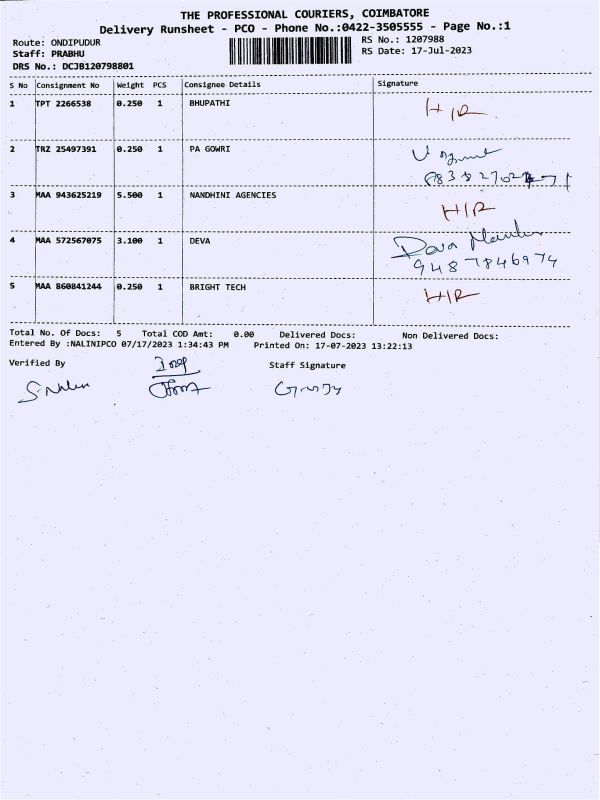 THE PROFESSIONAL COURIERS, COIMBATORE
Delivery Runsheet - PCO - Phone No.:0422-3505555 - Page No.:1
Route: ONDIPUDUR RS No.: 1207988
Staff: PRABHU RS Date: 17-Jul-2023
DRS No.: DCJB120798801
S No Consignment No Weight PCS Consignee Details Signature
1 TPT 2266538 0.250 1 BHUPATHI
2 TRZ 25497391 0.250 1 PA GOWRI
3 MAA 943625219 5.500 1 NANDHINI AGENCIES H/R
4 MAA 572567075 3.100 1 DEVA Deva
9487846974
5 MAA 860841244 0.250 1 BRIGHT TECH H/R
Total No. Of Docs: 5 Total COD Amt: 0.00 Delivered Docs: Non Delivered Docs:
Entered By :NALINIPCO 07/17/2023 1:34:43 PM Printed On: 17-07-2023 13:22:13
Verified By Staff Signature